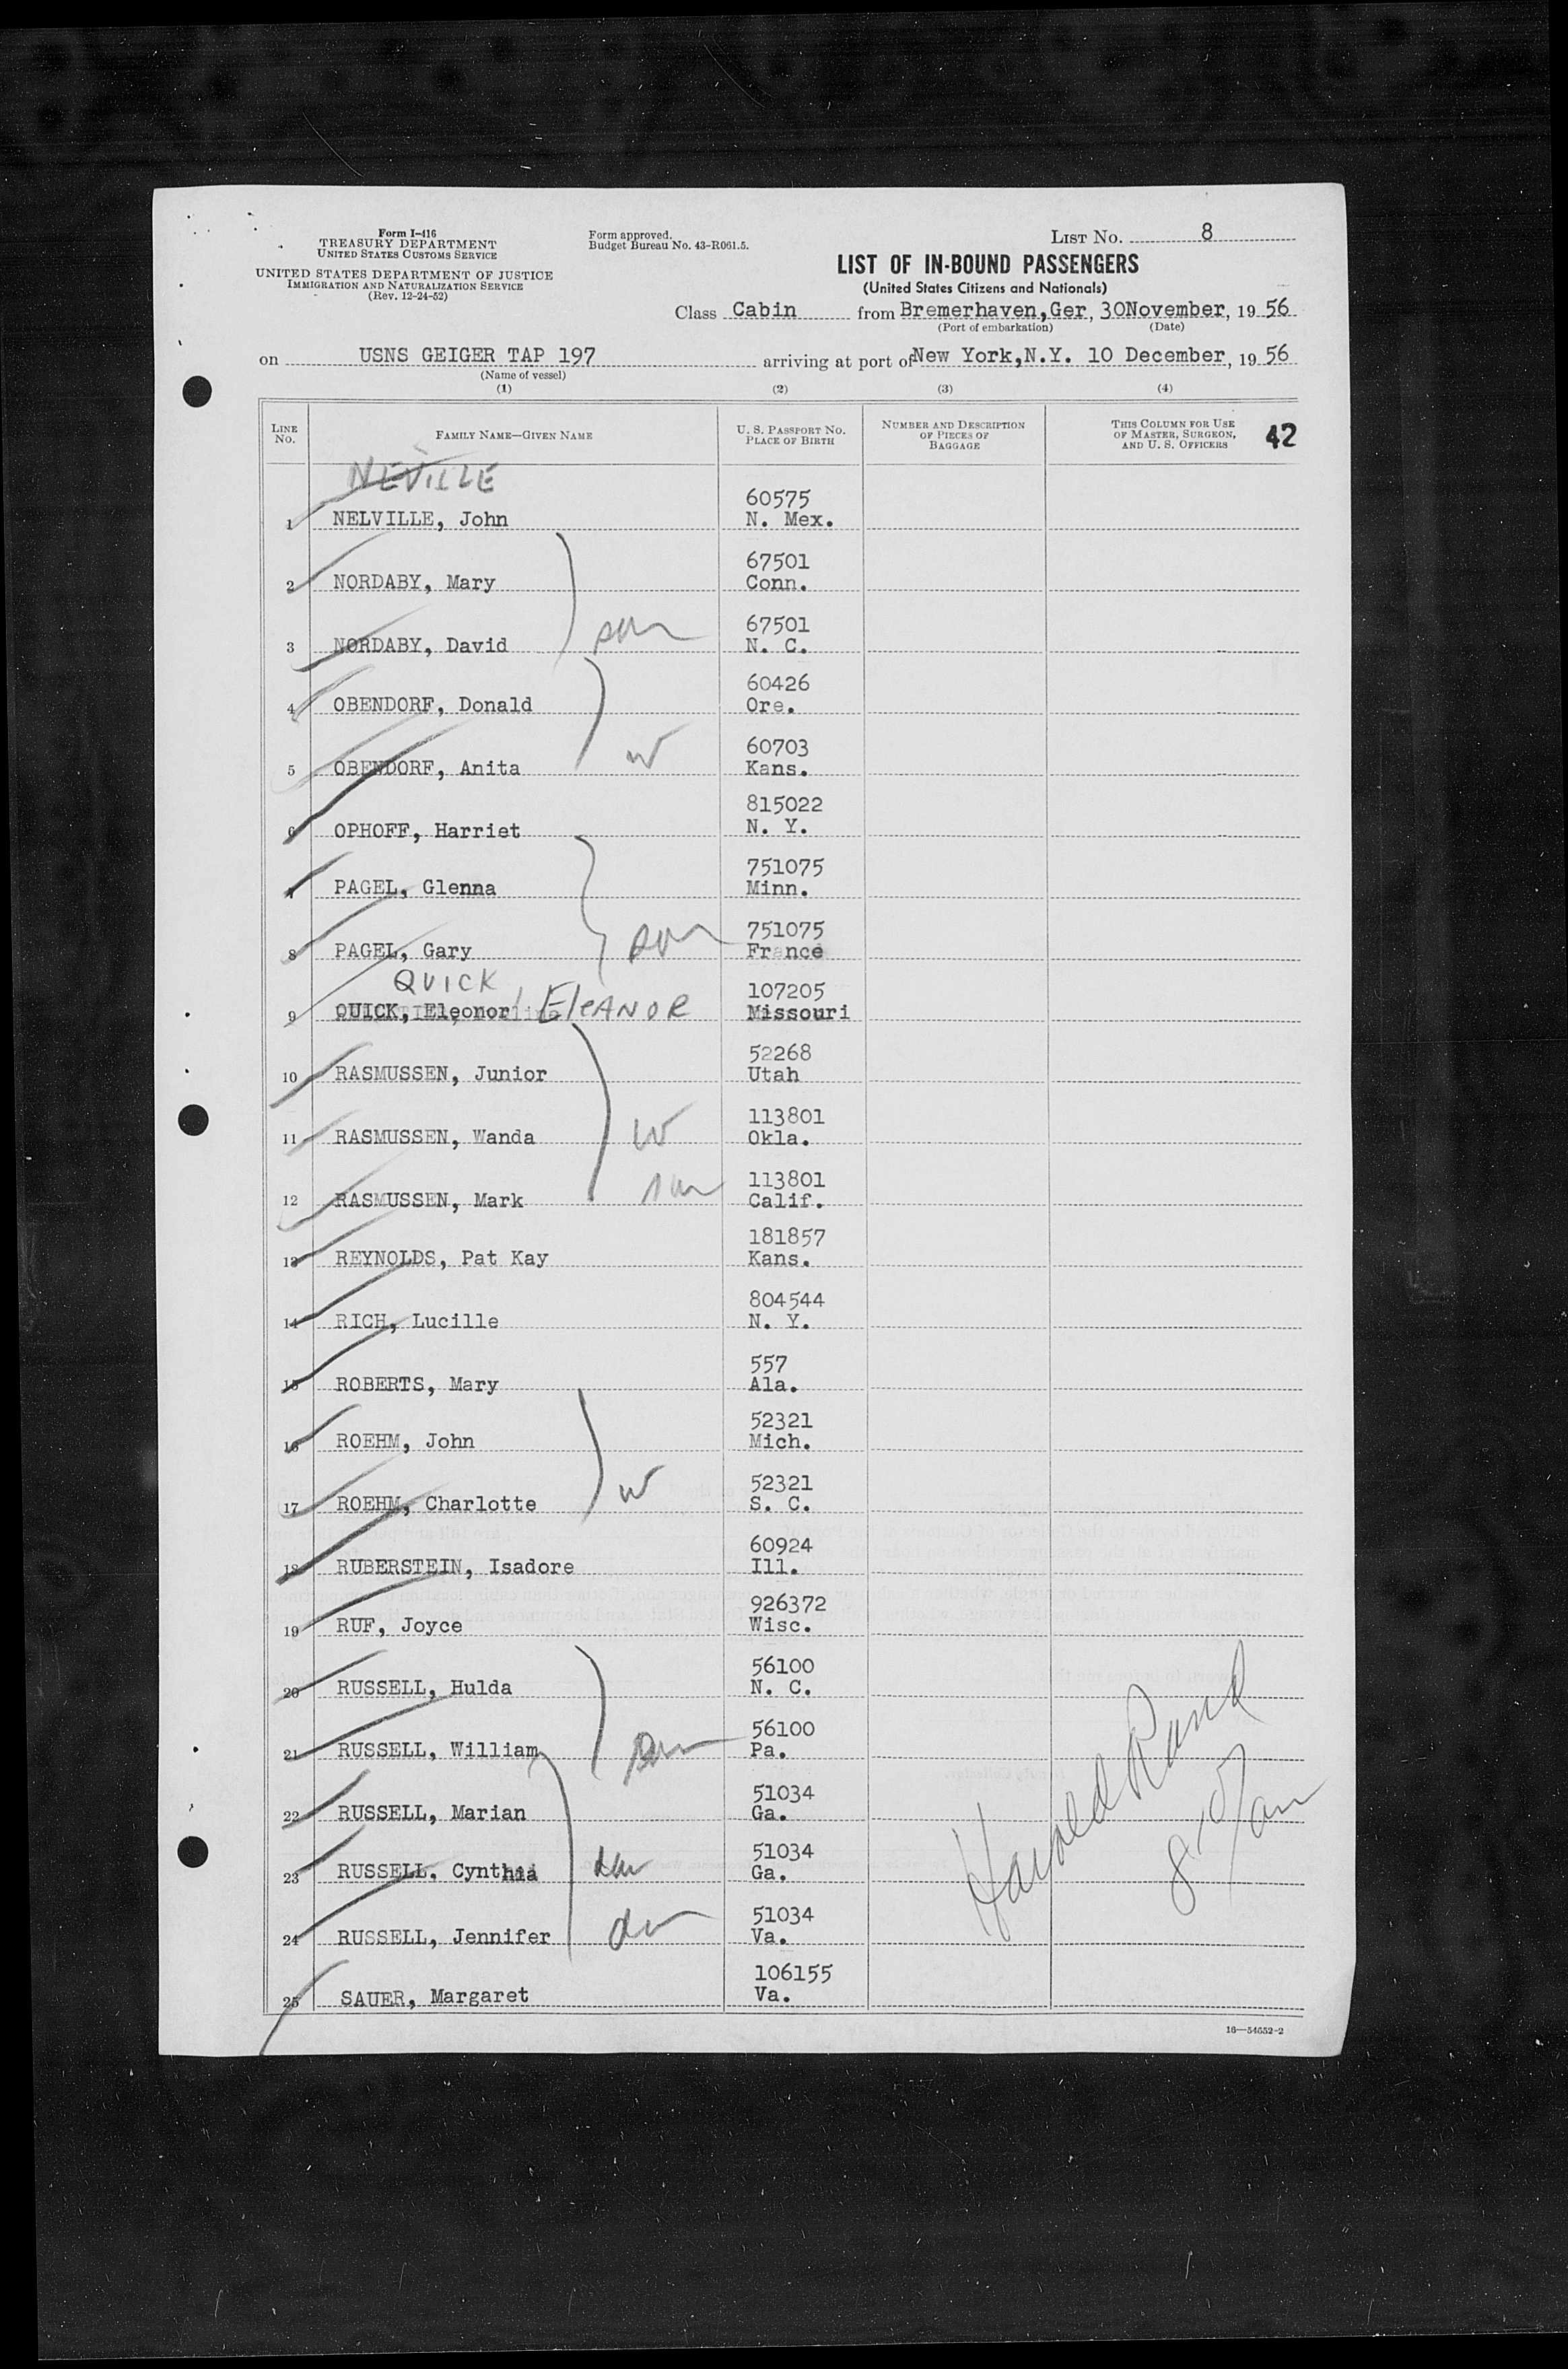 Form I-416
TREASURY DEPARTMENT
UNITED STATES CUSTOMS SERVICE
UNITED STATES DEPARTMENT OF JUSTICE
IMMIGRATION AND NATURALIZATION SERVICE
(Rev. 12-24-52)
Form approved.
Budget Bureau No. 43-R061.5.
LIST NO. 8
LIST OF IN-BOUND PASSENGERS
(United States Citizens and Nationals)
Class Cabin from Bremerhaven,Ger, 30November, 19 56
(Port of embarkation) (Date)
on USNS GEIGER TAP 197 arriving at port of New York,N.Y. 10 December, 19 56
(Name of vessel)
(1) (2) (3) (4)
LINE NO. FAMILY NAME—GIVEN NAME U. S. PASSPORT NO. PLACE OF BIRTH NUMBER AND DESCRIPTION OF PIECES OF BAGGAGE THIS COLUMN FOR USE OF MASTER, SURGEON, AND U. S. OFFICERS 42
NEVILLE
60575
1 NELVILLE, John N. Mex.
67501
2 NORDABY, Mary Conn.
67501
3 NORDABY, David son N. C.
60426
4 OBENDORF, Donald Ore.
60703
5 OBENDORF, Anita W Kans.
815022
6 OPHOFF, Harriet N. Y.
751075
7 PAGEL, Glenna Minn.
751075
8 PAGEL, Gary son France
QUICK
107205
9 QUICK, Eleonor EleANOR Missouri
52268
10 RASMUSSEN, Junior Utah
113801
11 RASMUSSEN, Wanda W Okla.
113801
12 RASMUSSEN, Mark son Calif.
181857
13 REYNOLDS, Pat Kay Kans.
804544
14 RICH, Lucille N. Y.
557
15 ROBERTS, Mary Ala.
52321
16 ROEHM, John Mich.
52321
17 ROEHM, Charlotte W S. C.
60924
18 RUBERSTEIN, Isadore Ill.
926372
19 RUF, Joyce Wisc.
56100
20 RUSSELL, Hulda N. C.
56100
21 RUSSELL, William son Pa.
51034
22 RUSSELL, Marian Ga.
51034
23 RUSSELL, Cynthia Ga.
51034
24 RUSSELL, Jennifer Va.
106155
25 SAUER, Margaret Va.
Harold Rand
16—54652-2